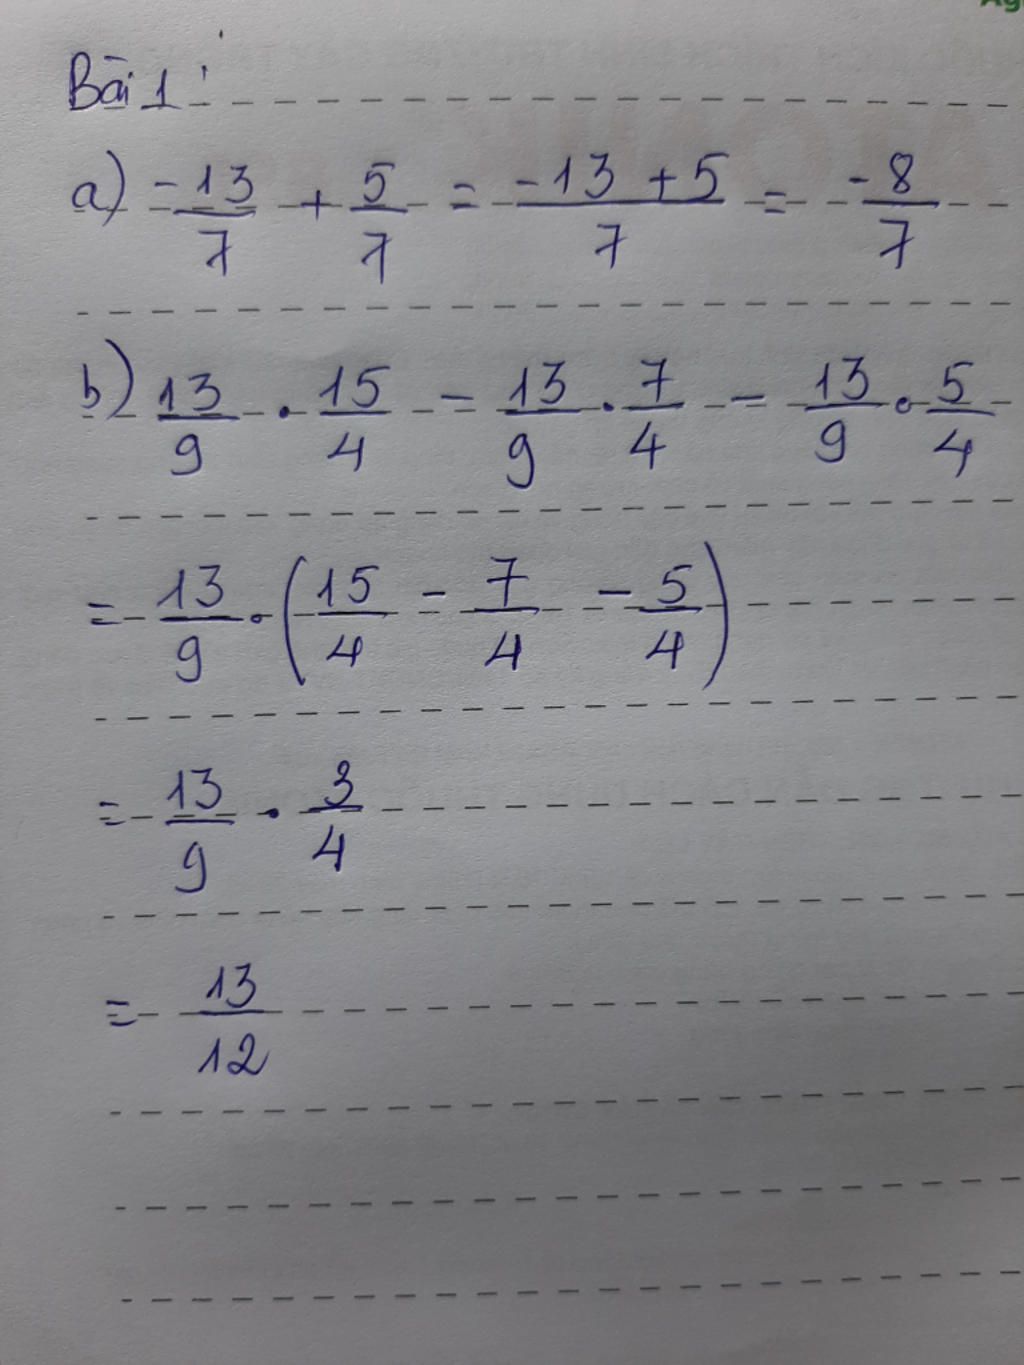 Bài 1:
a) -13/7 + 5/7 = -13+5/7 = -8/7
b) 13/9 . 15/4 - 13/9 . 7/4 - 13/9 . 5/4
= 13/9 . (15/4 - 7/4 - 5/4)
= 13/9 . 3/4
= 13/12